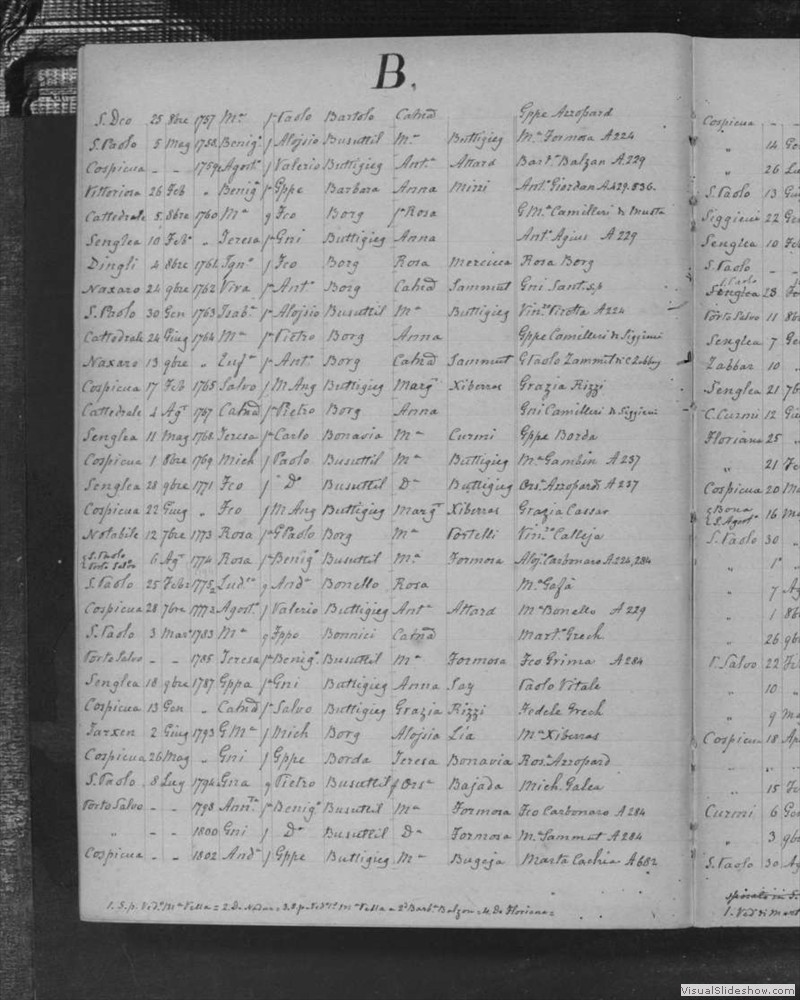 B.
S. Dco 25 8bre 1757 Ma f Paolo Bartolo Catnd Gppe Azzopard
S. Paolo 5 Mag 1758 Benig. f Alojsio Busuttil Ma Buttigieg Ma Formosa A 224
Cospicua - - 1759 Agost. f Valerio Buttigieg Anta Attard Barta Balzan A 229
Vittoriosa 26 Feb " Benig f Gppe Barbara Anna Mini Anto Giordan A 429. 836.
Cattedrale 5 8bre 1760 Ma g Fco Borg f Rosa G Ma Camilleri di Musta
Senglea 10 Feb " Teresa f Gni Buttigieg Anna Anto Agius A 229
Dingli 4 8bre 1761 Igno f Fco Borg Rosa Mercieca Rosa Borg
Naxaro 24 9bre 1762 Viva f Anto Borg Catnd Sammut Gni Sant
S. Paolo 30 Gen 1763 Isab. f Alojsio Busuttil Ma Buttigieg Vinzo A 224
Cattedrale 24 Giug 1764 Ma f Pietro Borg Anna Gppe Camilleri di Siggieui
Naxaro 13 9bre " f Anto Borg Catnd Sammut G Paolo Zammut
Cospicua 17 Feb 1765 Salvo f M Ang Buttigieg Marga Xiberras Grazia Rizzi
Cattedrale 4 Ag. 1767 Catnd f Pietro Borg Anna Gni Camilleri di Siggieui
Senglea 11 Mag 1768 Teresa f Carlo Bonavia Ma Curmi Gppe Borda
Cospicua 1 8bre 1769 Mich f Paolo Busuttil Ma Buttigieg Ma Gambin A 237
Senglea 28 9bre 1771 Fco f Do Busuttil Da Buttigieg Orsa Azzopardi A 237
Cospicua 22 Giug " Fco f M Ang Buttigieg Marga Xiberras Grazia Cassar
Notabile 12 7bre 1773 Rosa f G Paolo Borg Ma Portelli Vinzo Calleja
S. Paolo
Porto Salvo 6 Ag. 1774 Rosa f Benig. Busuttil Ma Formosa Aloj. Carbonaro A 224, 284
S. Paolo 25 Febr 1775 g Anda Bonello Rosa Ma Gafà
Cospicua 28 7bre 1777 Agost. f Valerio Buttigieg Anta Attard Ma Bonello A 229
S. Paolo 3 Mar 1783 Ma g Fppo Bonnici Catnd Marta Grech
Porto Salvo - - 1785 Teresa f Benig. Busuttil Ma Formosa Fco Grima A 284
Senglea 18 9bre 1787 Gppa f Gni Buttigieg Anna Say Paolo Vitale
Cospicua 13 Gen " Catnd f Salvo Buttigieg Grazia Rizzi Fedele Grech
Tarxen 2 Giug 1793 G Ma f Mich Borg Alojsia Lia Ma Xiberras
Cospicua 26 Mag " Gni f Gppe Borda Teresa Bonavia Rosa Azzopard
S. Paolo 8 Lug 1794 Gna g Pietro Busuttil f Orsa Bajada Mich. Galea
Porto Salvo - - 1798 Annta f Benig. Busuttil Ma Formosa Fco Carbonaro A 284
" - - 1800 Gni f Do Busuttil Da Formosa Ma Sammut A 284
Cospicua - - 1802 Anda f Gppe Buttigieg Ma Bugeja Marta Cachia A 682
1. S.p. Veda Ma Vella = 2. Da Nadur = Ma Vella = Barba Balzon = 4. Da Floriana =
Cospicua - -
" 14 Gen
" 26 Lu
S. Paolo 13 Giu
Siggieui 22 Gen
Senglea 10 Fe
S. Paolo -
S. Paolo
Senglea 23
Porto Salvo 11 8b
Senglea 7 Ge
Zabbar 10 "
Senglea 21 7b
C. Curmi 12 Giu
Floriana 25 "
" 21 Fe
Cospicua 20 Ma
Bona
S. Agost. 16 Ma
S. Paolo 30 "
" 1 "
" 7 Ag
" 1 8b
" 26 9b
P. Salvo 22 Fe
" 10 "
" 9 Ma
Cospicua 18 Ap
" " "
" 15 Fe
Curmi 6 Gen
" 3 9b
S. Paolo 30 Ag
VisualSlideshow.com